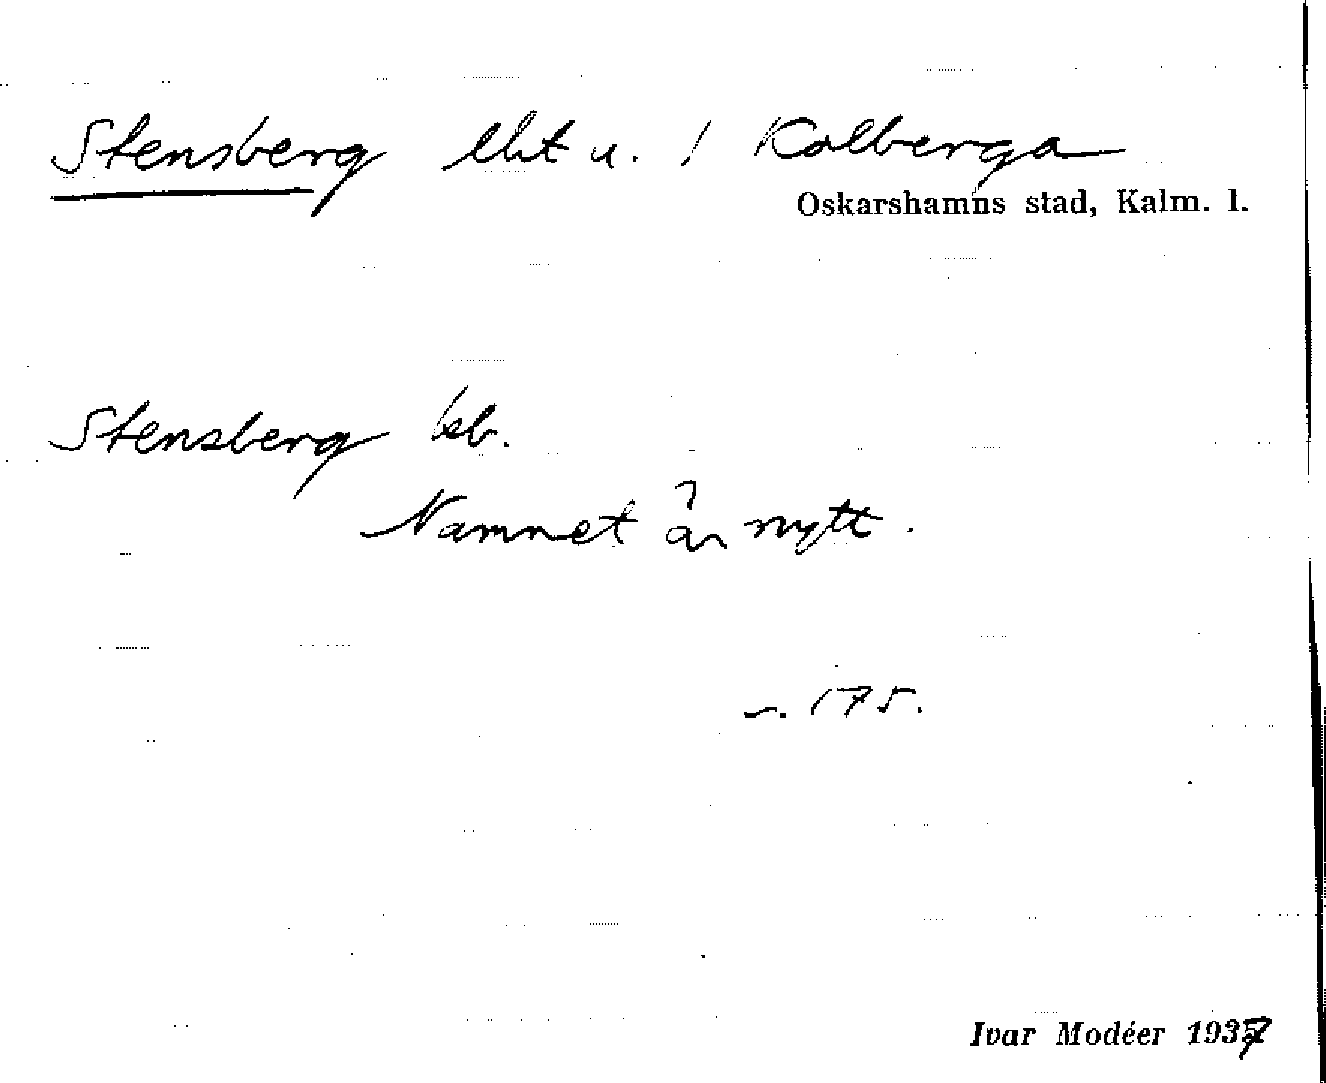 Stensberg lht u. / Kolberga
Oskarshamns stad, Kalm. l.
Stensberg kb.
Namnet är nytt.
s. 175.
Ivar Modéer 1937